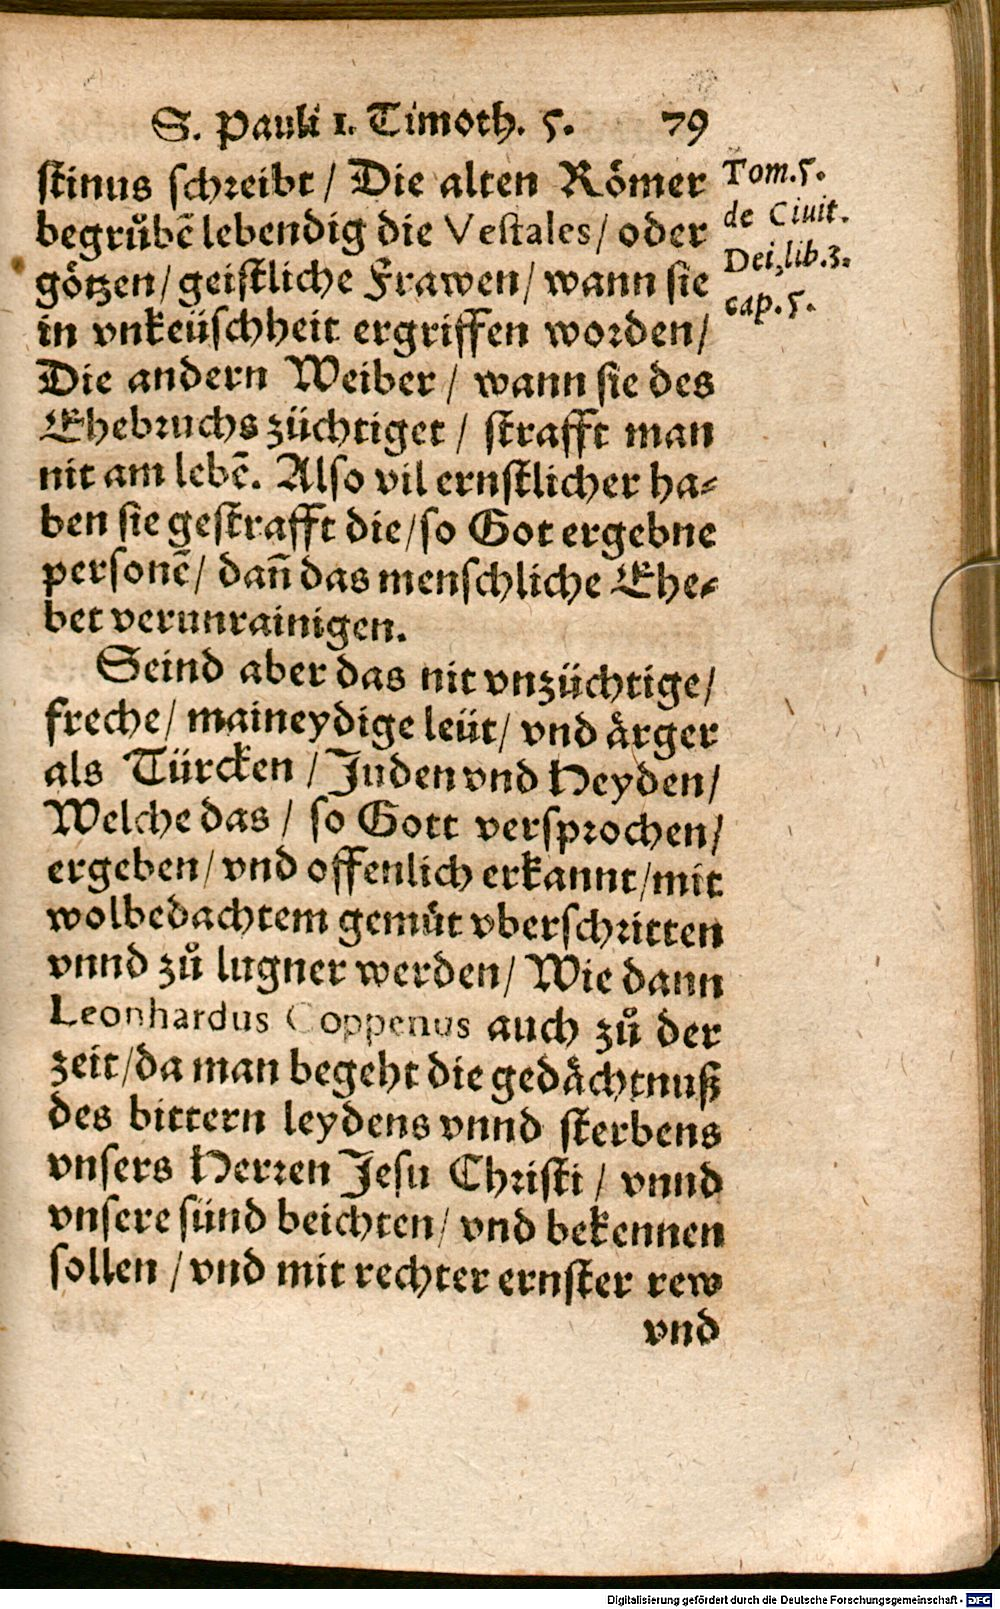 S. Pauli 1. Timoth. 5. 79
stinus schreibt / Die alten Römer
begrůbē lebendig die Vestales / oder
götzen / geistliche Frawen / wann sie
in vnkeüschheit ergriffen worden /
Die andern Weiber / wann sie des
Ehebruchs züchtiget / strafft man
nit am lebē. Also vil ernstlicher ha-
ben sie gestrafft die / so Got ergebne
personē / dañ das menschliche Ehe-
bet verunrainigen.
Tom. 5.
de Ciuit.
Dei, lib. 3.
cap. 5.
Seind aber das nit vnzüchtige /
freche / maineydige leüt / vnd ärger
als Türcken / Juden vnd Heyden /
Welche das / so Gott versprochen /
ergeben / vnd offenlich erkannt / mit
wolbedachtem gemüt vberschritten
vnnd zů lugner werden / Wie dann
Leonhardus Coppenus auch zů der
zeit / da man begeht die gedächtnuß
des bittern leydens vnnd sterbens
vnsers Herren Jesu Christi / vnnd
vnsere sünd beichten / vnd bekennen
sollen / vnd mit rechter ernster rew
vnd
Digitalisierung gefördert durch die Deutsche Forschungsgemeinschaft - DFG